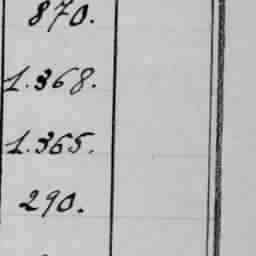 870.
1.368.
1.365.
290.